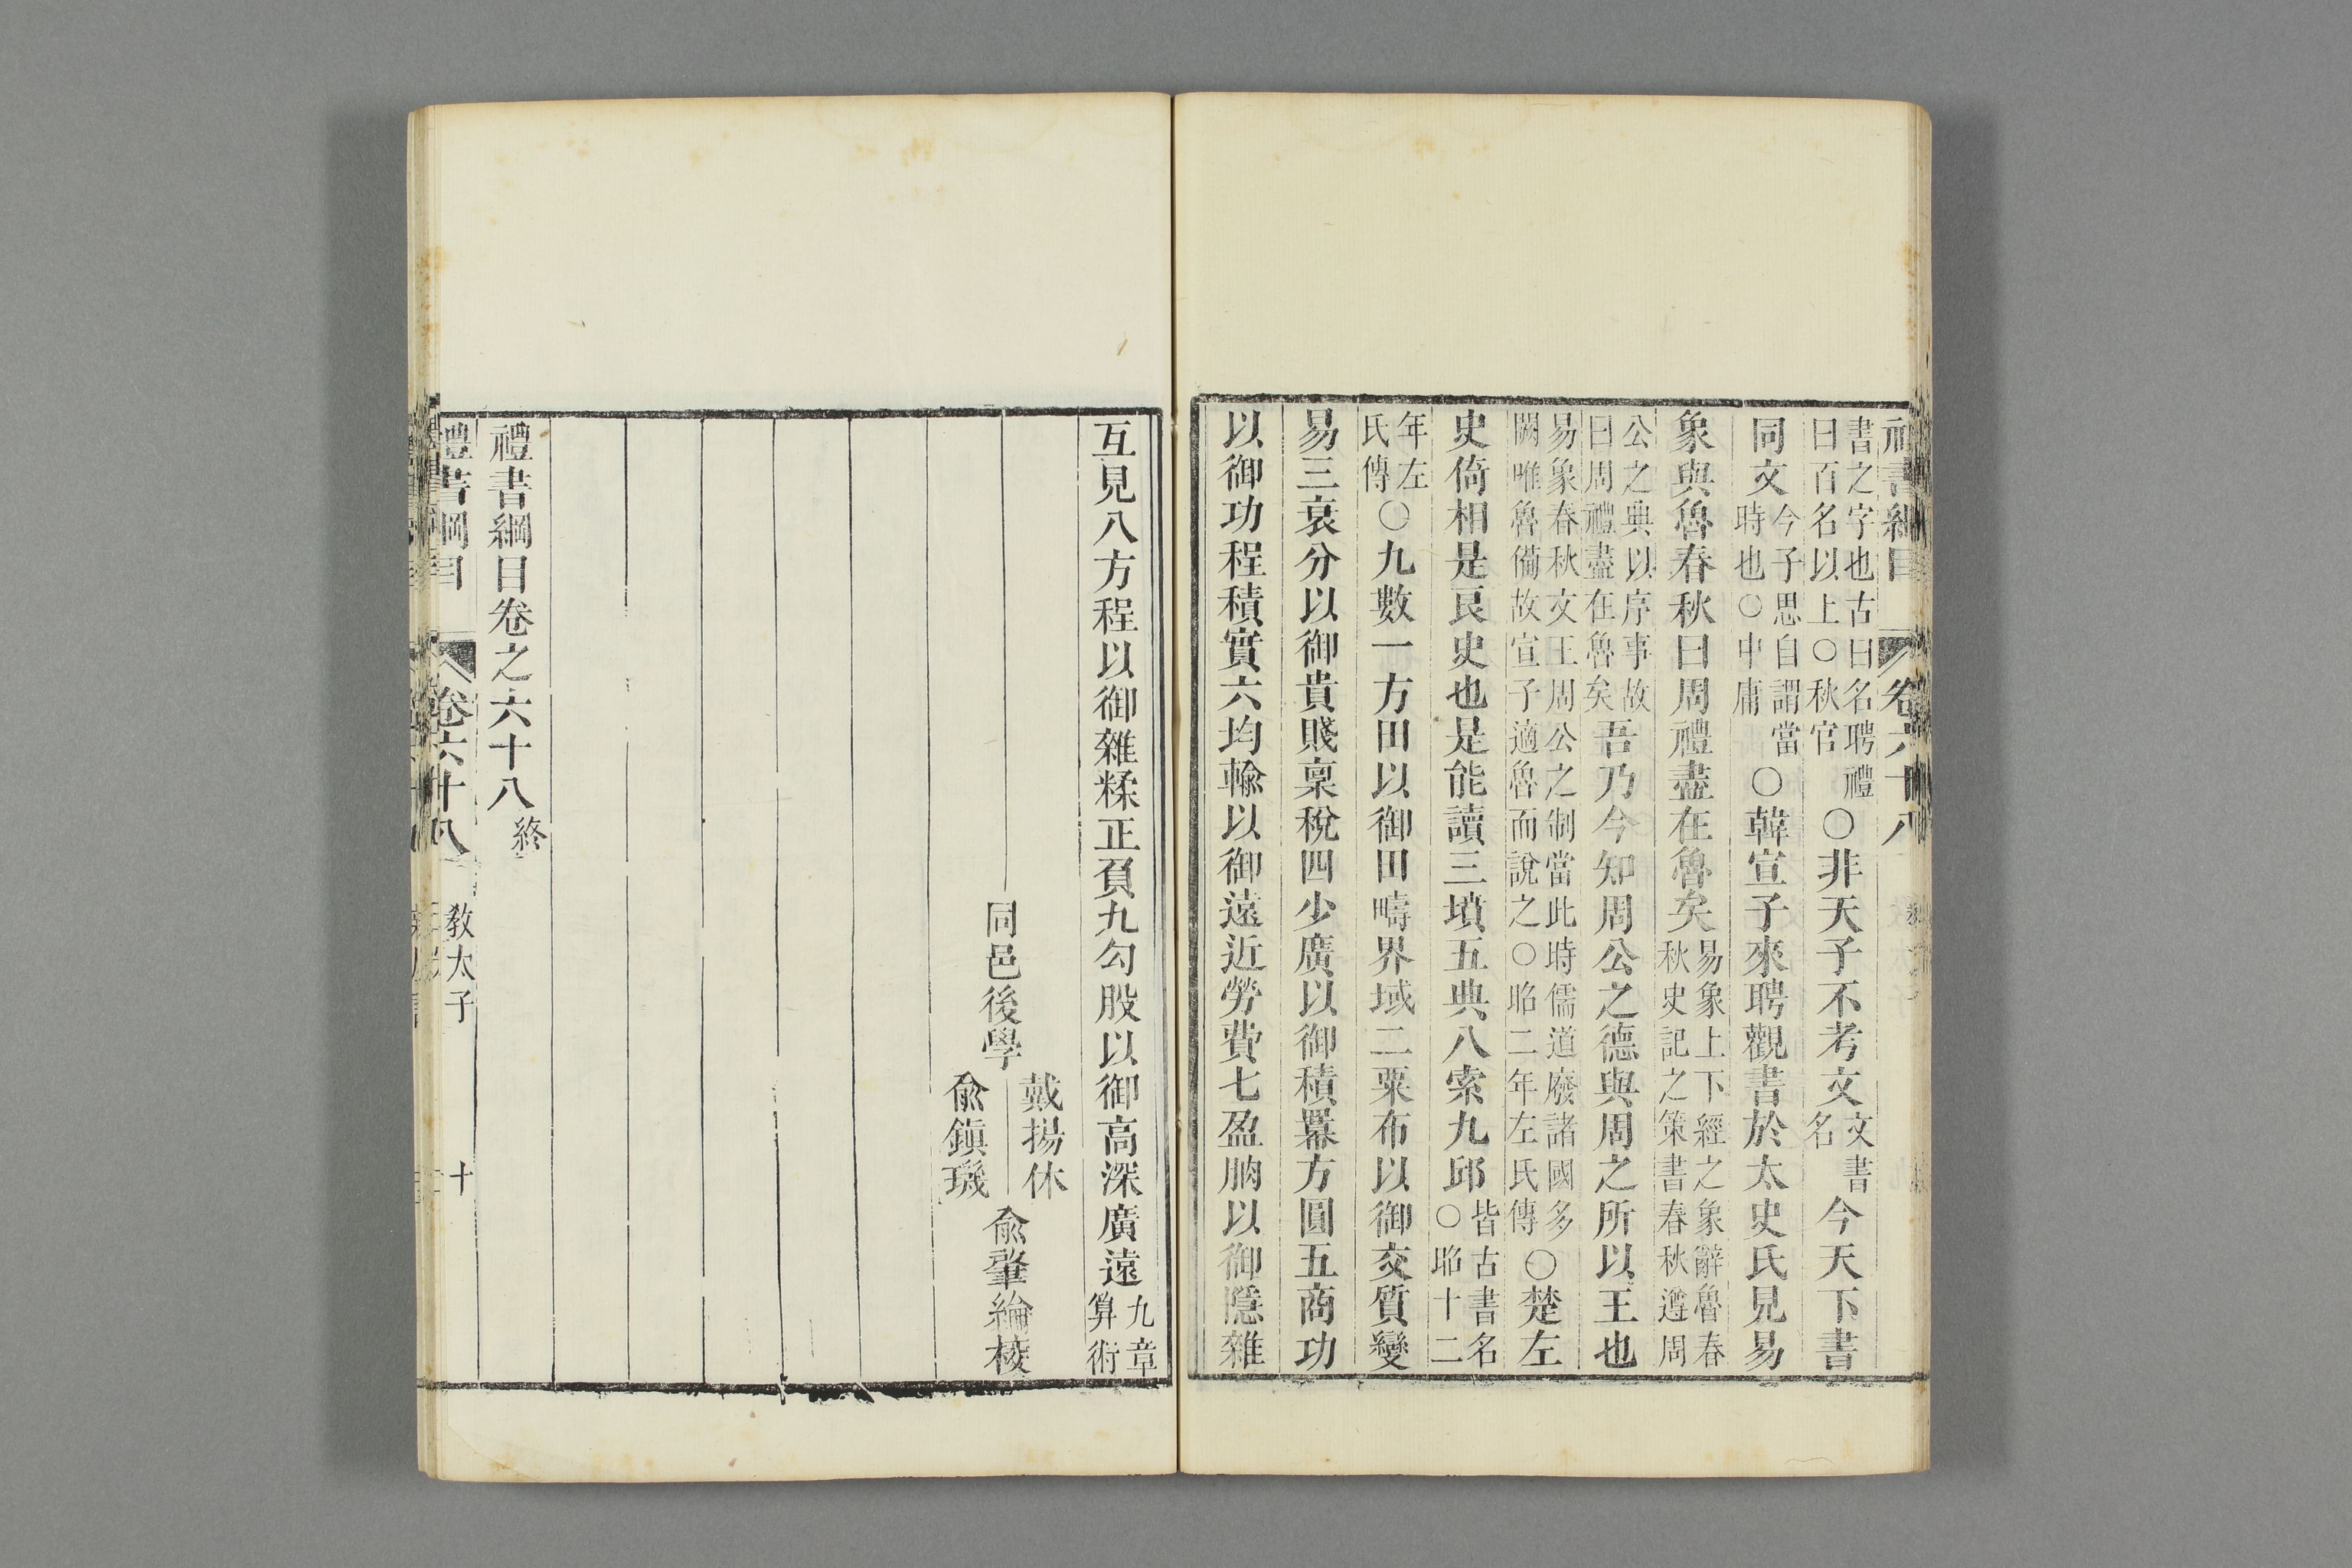 禮書綱目 卷六十八
書之字也古曰名聘禮曰百名以上○秋官○非天子不考文文書名今天下書
同文今子思自謂當時也○中庸○韓宣子來聘觀書於太史氏見易
象與魯春秋曰周禮盡在魯矣易象上下經之象辭魯春秋史記之策書春秋遵周
公之典以序事故曰周禮盡在魯矣吾乃今知周公之德與周之所以王也
易象春秋文王周公之制當此時儒道廢諸國多闕唯魯備故宣子適魯而說之○昭二年左氏傳○楚左
史倚相是良史也是能讀三墳五典八索九邱皆古書名○昭十二
年左氏傳○九數一方田以御田疇界域二粟布以御交質變
易三衰分以御貴賤稟稅四少廣以御積冪方圓五商功
以御功程積實六均輸以御遠近勞費七盈朒以御隱雜
互見八方程以御雜糅正負九勾股以御高深廣遠九章算術
同邑後學 戴揚休 俞鎮璣 俞肇綸校
禮書綱目卷之六十八終
禮書綱目 卷六十八 教太子 十